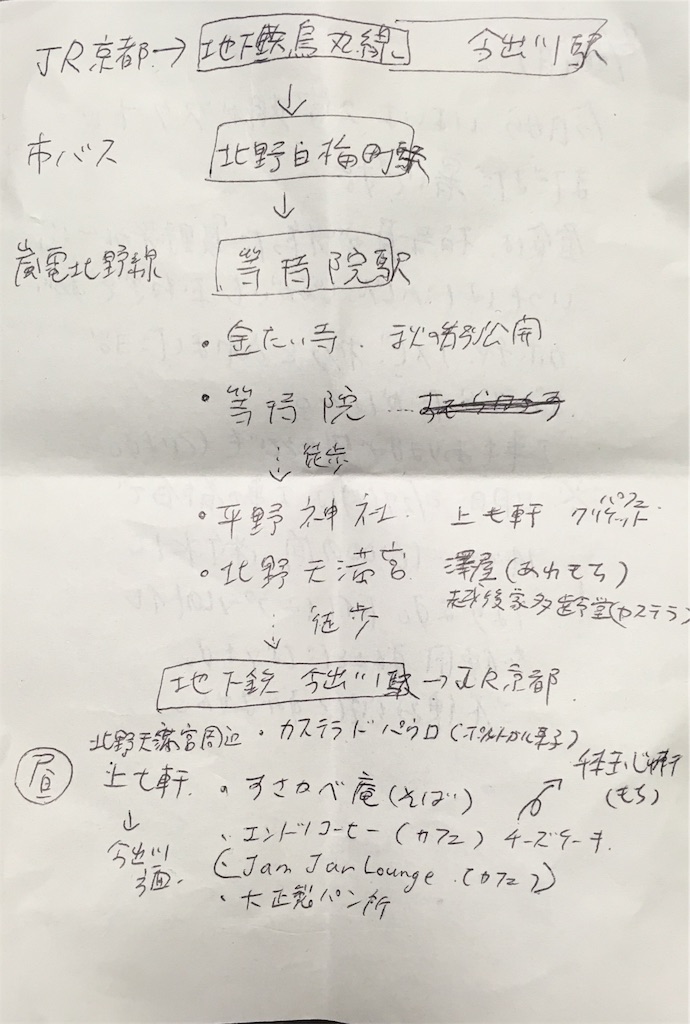 JR京都→地下鉄烏丸線 今出川駅
↓
市バス 北野白梅町駅
↓
嵐電北野線 等持院駅
・金たい寺. 秋の特別公開
・等持院
↓徒歩
・平野神社. 上七軒 パフェ
・北野天満宮 澤屋(あわもち)
越後家多齢堂(カステラ)
↓徒歩
地下鉄 今出川駅→JR京都.
北野天満宮周辺・カステラドパウロ(ポルトガル菓子)
昼 上七軒.・すさかべ庵(そば)
(もち)
↓
今出川
方面.
・エンドリコーヒー(カフェ) チーズケーキ.
(Jam Jar Lounge.(カフェ))
・大正製パン所